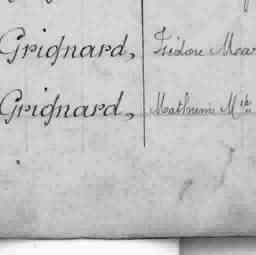 Grignard, Isidore Mar
Grignard, Mathurin M